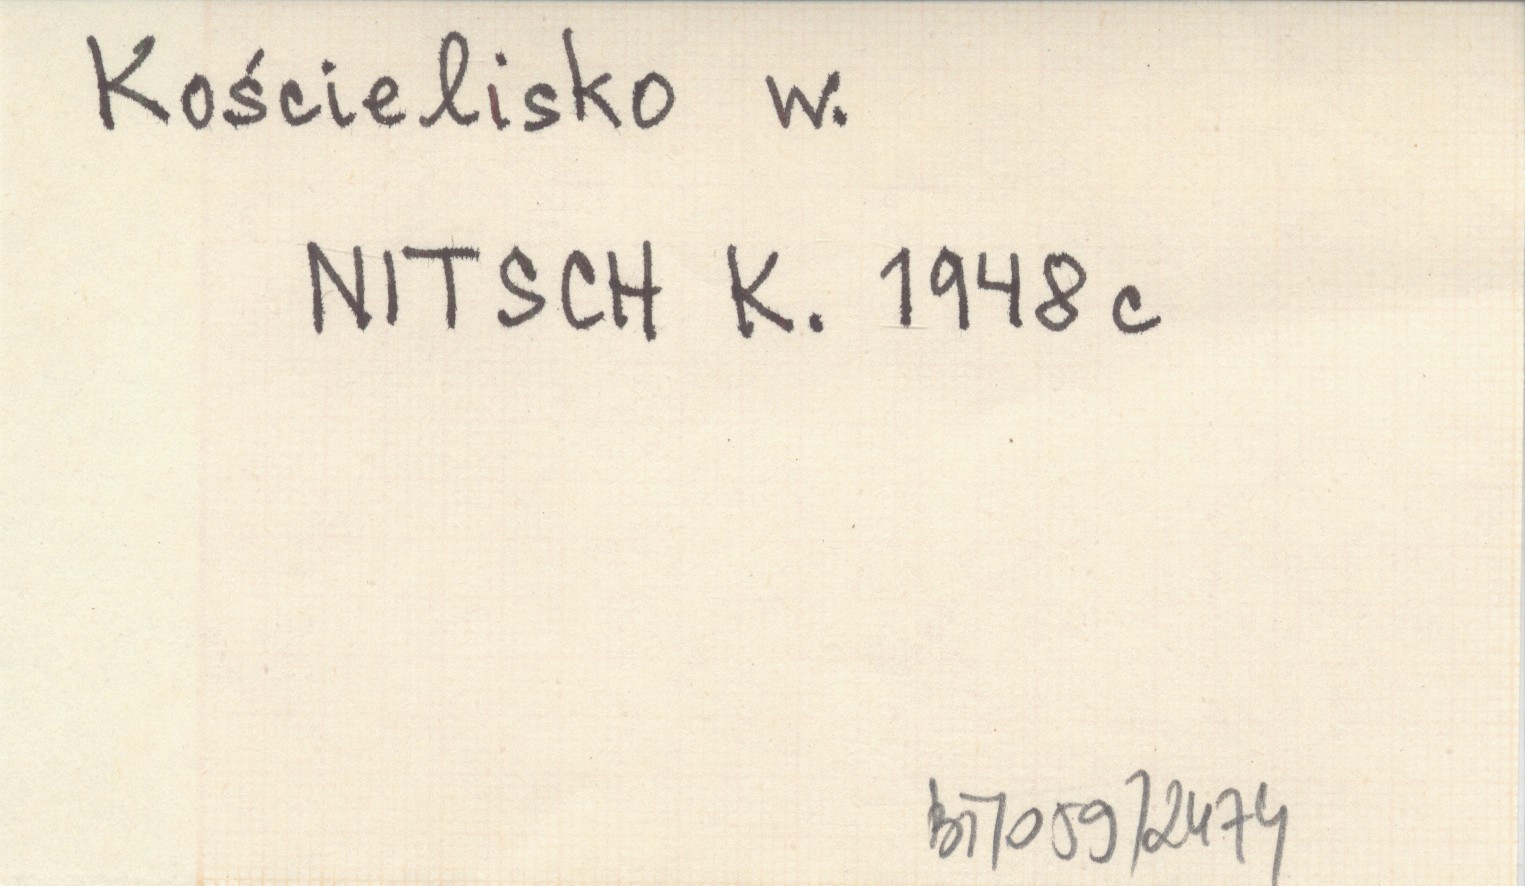 Kościelisko w.
NITSCH K. 1948c
bT/059/2474